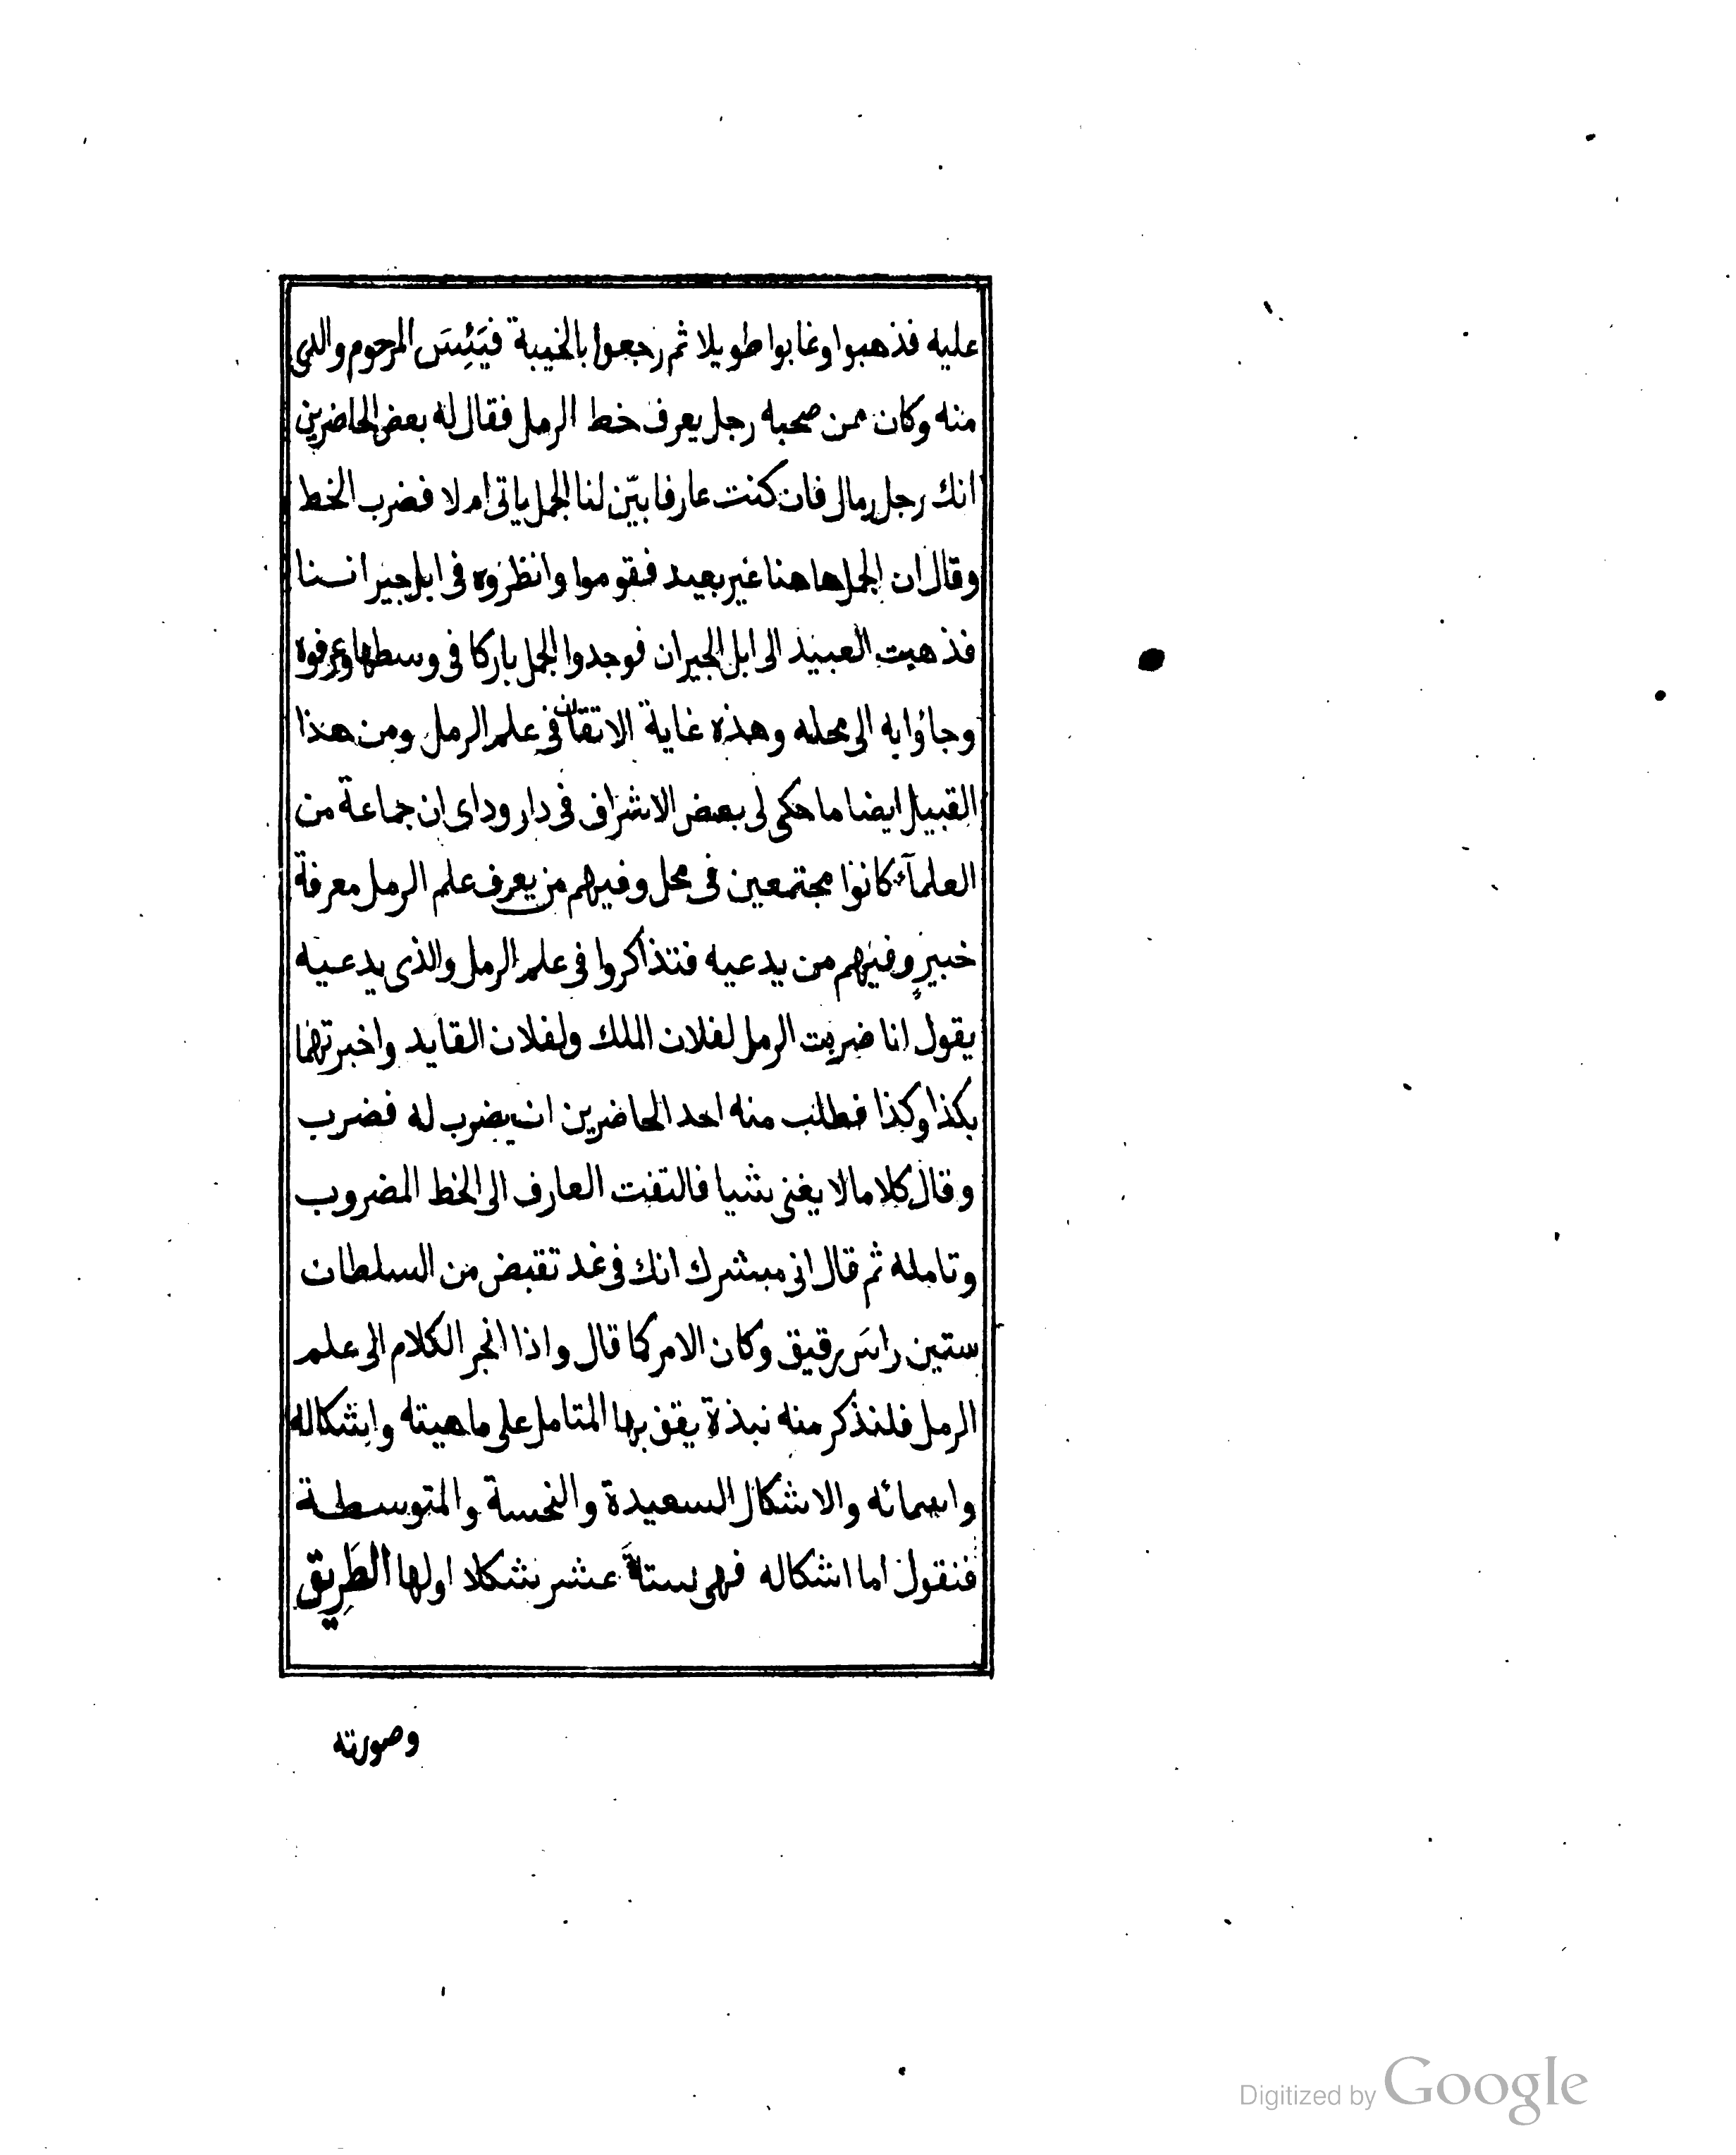 عليه فذهبوا وغابوا طويلا ثم رجعوا بالخيبة فَيَئِسَ المرحوم والدى
منه وكان ممن صحبه رجل يعرف خط الرمل فقال له بعض الحاضرين
انك رجل رمال فان كنت عارفا بيّن لنا الجمل ياتى ام لا فضرب الخط
وقال ان الجمل هاهنا غير بعيد فقوموا وانظروه فى ابل جيراننا
فذهبت العبيد الى ابل الجيران فوجدوا الجمل باركا فى وسطها وعرفوه
وجاؤا به الى محله وهذه غاية الاتقان فى علم الرمل ومن هذا
القبيل ايضا ما حكى لى بعض الاشراف فى دار وداى ان جماعة من
العلمآء كانوا مجتمعين فى محل وفيهم من يعرف علم الرمل معرفة
خبيرٍ وفيهم من يدعيه فتذاكروا فى علم الرمل والذى يدعيه
يقول انا ضربت الرمل لفلان الملك ولفلان القايد واخبرتهما
بكذا وكذا فطلب منه احد الحاضرين ان يضرب له فضرب
وقال كلاما لا يغنى شيا فالتفت العارف الى الخط المضروب
وتامله ثم قال انى مبشرك انك فى غد تقبض من السلطان
ستين راس رقيق وكان الامر كما قال واذا انجر الكلام الى علم
الرمل فلنذكر منه نبذة يقف بها المتامل على ماهيته واشكاله
واسمائه والاشكال السعيدة والنحسة والمتوسطة
فنقول اما اشكاله فهى ستةَ عشر شكلا اولها الطَرِيق
وصورته
Digitized by Google